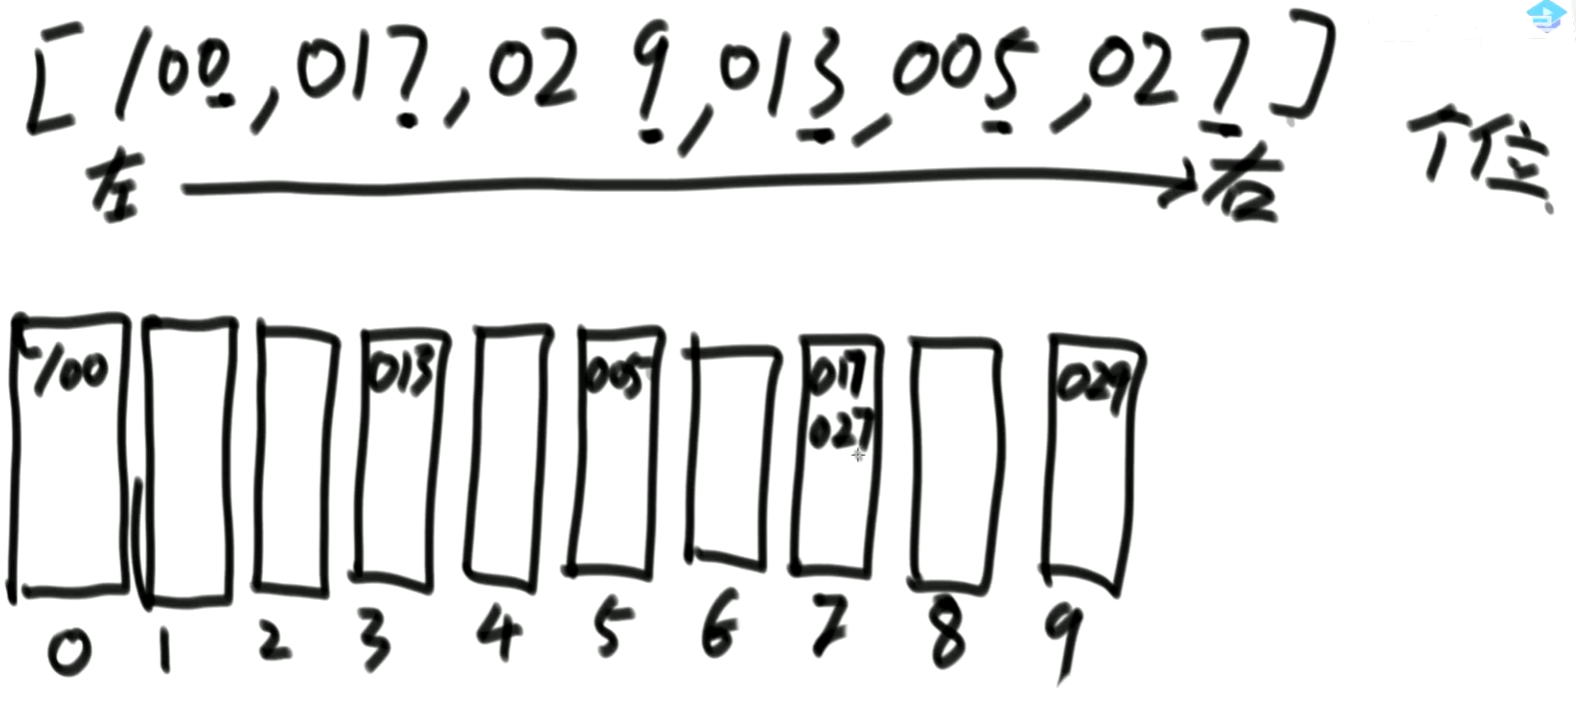 [100,017,029,013,005,027]
左 右 个位
100 013 005 017 029
027
0 1 2 3 4 5 6 7 8 9